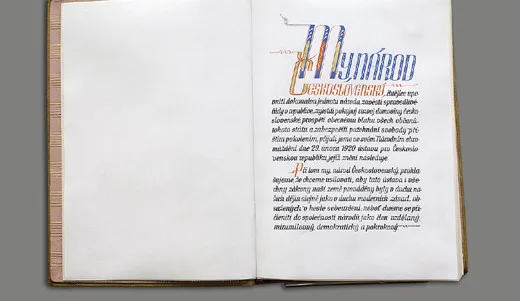 My, NÁROD
ČESKOSLOVENSKÝ, chtějíce upe-
vniti dokonalou jednotu národa, zavésti spravedlivé
řády v republice, zajistiti pokojný rozvoj domoviny česko-
slovenské, prospěti obecnému blahu všech občanů
tohoto státu a zabezpečiti požehnání svobody pří-
štím pokolením, přijali jsme ve svém Národním shro-
máždění dne 29. února 1920 ústavu pro Českoslo-
venskou republiku, jejíž znění následuje.
Při tom my, národ Československý, prohla-
šujeme, že chceme usilovati, aby tato ústava i vše-
chny zákony naší země prováděny byly v duchu na-
šich dějin stejně jako v duchu moderních zásad, ob-
sažených v hesle sebeurčení, neboť chceme se při-
členiti do společnosti národů jako člen vzdělaný,
mírumilovný, demokratický a pokrokový